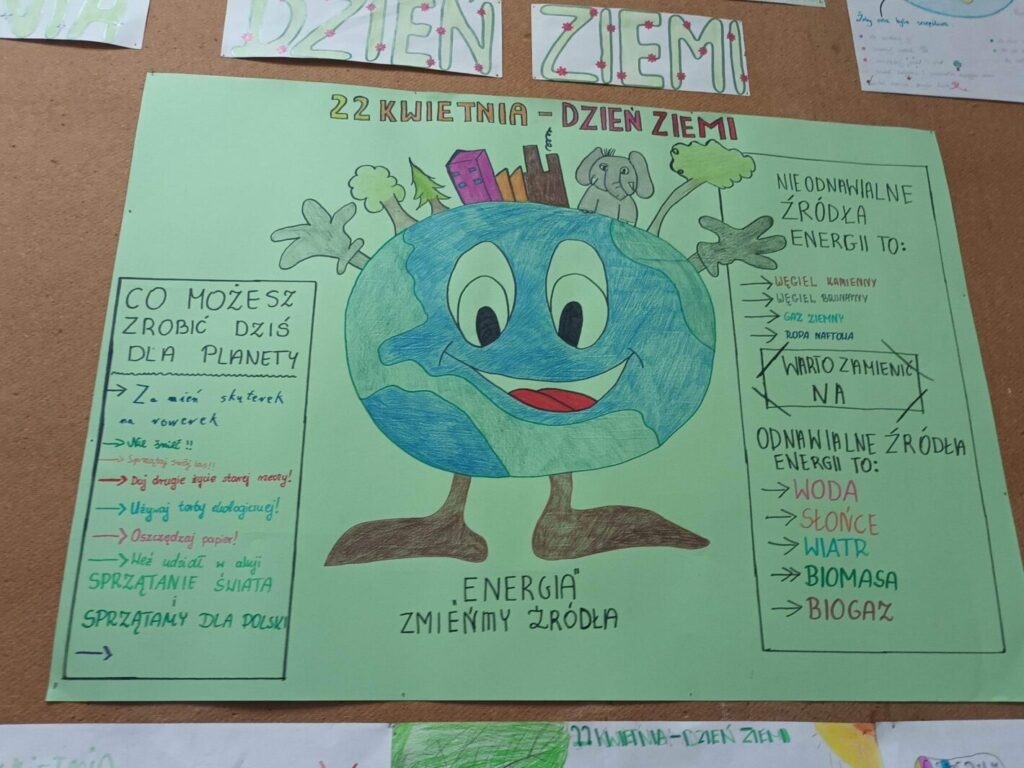 DZIEŃ ZIEMI
22 KWIETNIA - DZIEŃ ZIEMI
CO MOŻESZ
ZROBIĆ DZIŚ
DLA PLANETY
→ Zamień skuterek
na rowerek
→ Nie śmieć!!
→ Sprzątaj swój las!!
→ Daj drugie życie starej rzeczy!
→ Używaj torby ekologicznej!
→ Oszczędzaj papier!
→ Weź udział w akcji
SPRZĄTANIE ŚWIATA
i
SPRZĄTAMY DLA POLSKI
→
"ENERGIA"
ZMIEŃMY ŹRÓDŁA
NIEODNAWIALNE
ŹRÓDŁA
ENERGII TO:
→ WĘGIEL KAMIENNY
→ WĘGIEL BRUNATNY
→ GAZ ZIEMNY
→ ROPA NAFTOWA
WARTO ZAMIENIĆ
NA
ODNAWIALNE ŹRÓDŁA
ENERGII TO:
→ WODA
→ SŁOŃCE
→ WIATR
→ BIOMASA
→ BIOGAZ
22 KWIETNIA - DZIEŃ ZIEMI